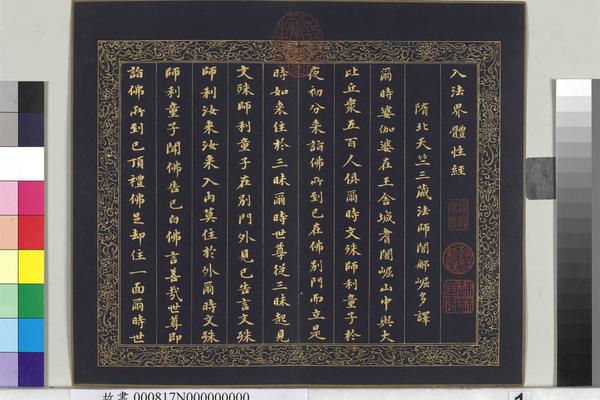 入法界體性經
隋北天竺三藏法師闍那崛多譯
爾時婆伽婆在王舍城耆闍崛山中與大
比丘衆五百人俱爾時文殊師利童子於
夜初分來詣佛所到已在佛別門而立是
時如來住於三昧爾時世尊從三昧起見
文殊師利童子在別門外見已告言文殊
師利汝來汝來入內莫住於外爾時文殊
師利童子聞佛告已白佛言善哉世尊即
詣佛所到已頂禮佛足却住一面爾時世
故畫 000817N000000000